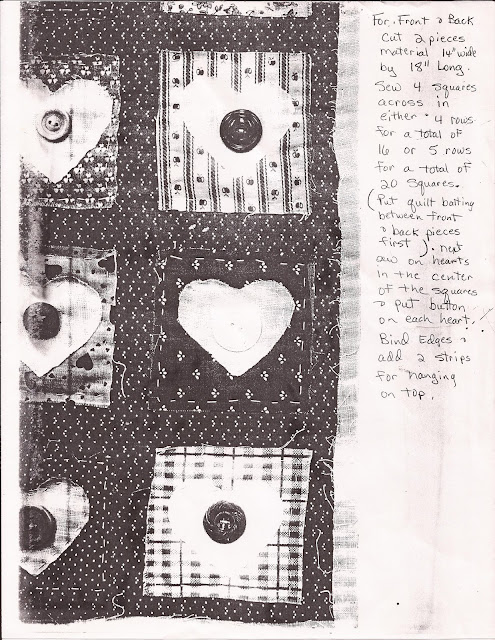 For Front & Back
Cut 2 pieces
material 14" wide
by 18" Long.
Sew 4 squares
across in
either 4 rows
for a total of
16 or 5 rows
for a total of
20 squares.
(Put quilt batting
between front
& back pieces
first). next
sew on hearts
in the center
of the squares
& put button
on each heart.
Bind Edges &
add 2 strips
for hanging
on top.